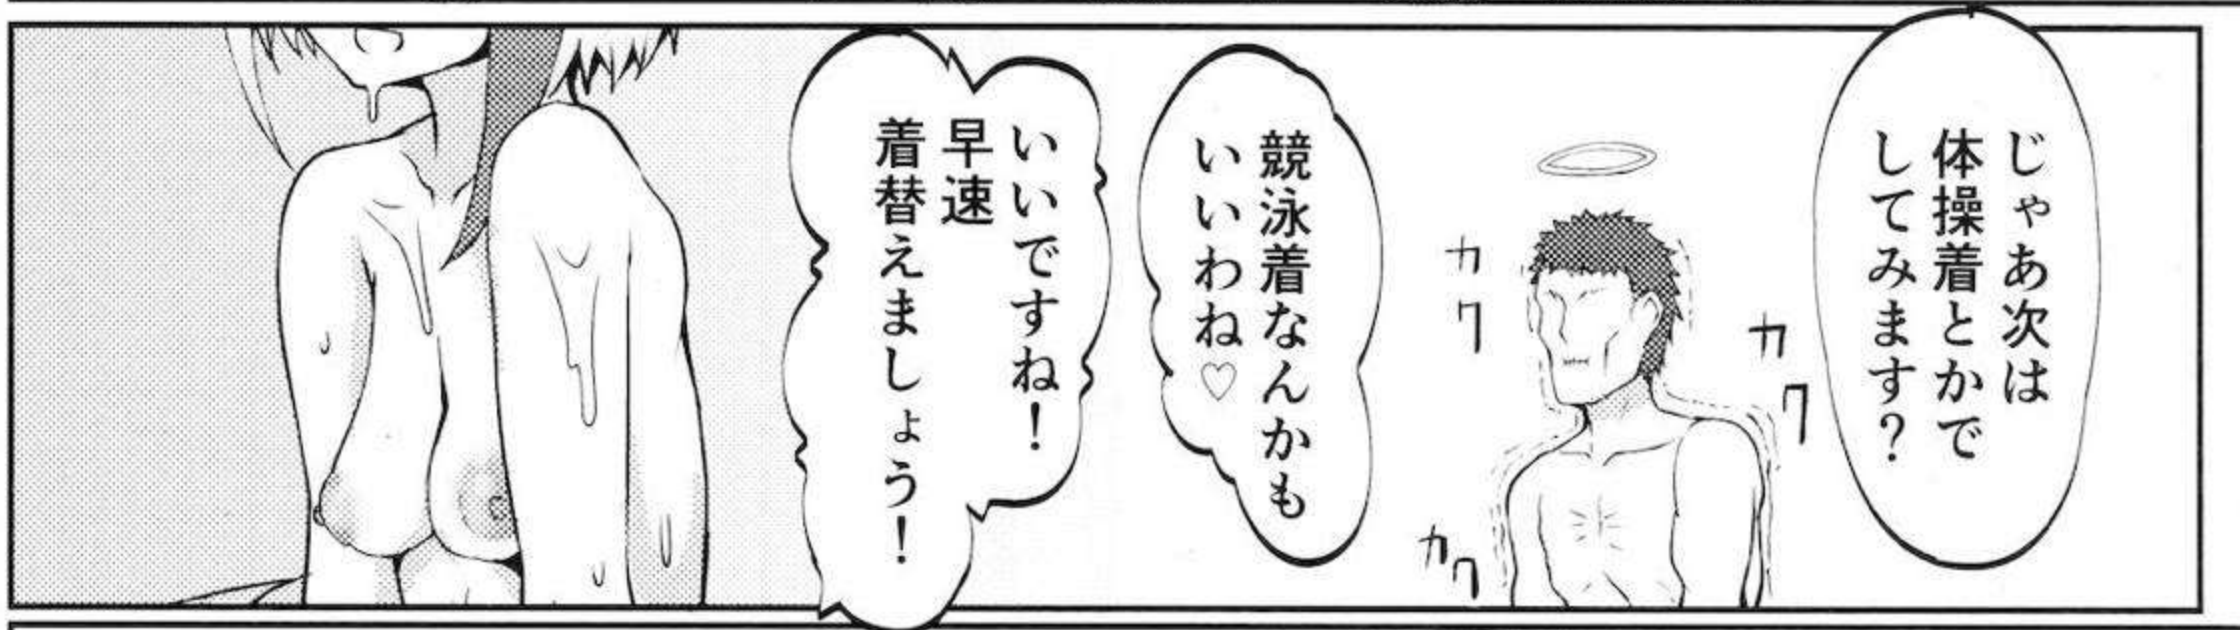 じゃあ次は
体操着とかで
してみます?
カク
カク
カク
競泳着なんかも
いいわね♡
いいですね!
早速
着替えましょう!